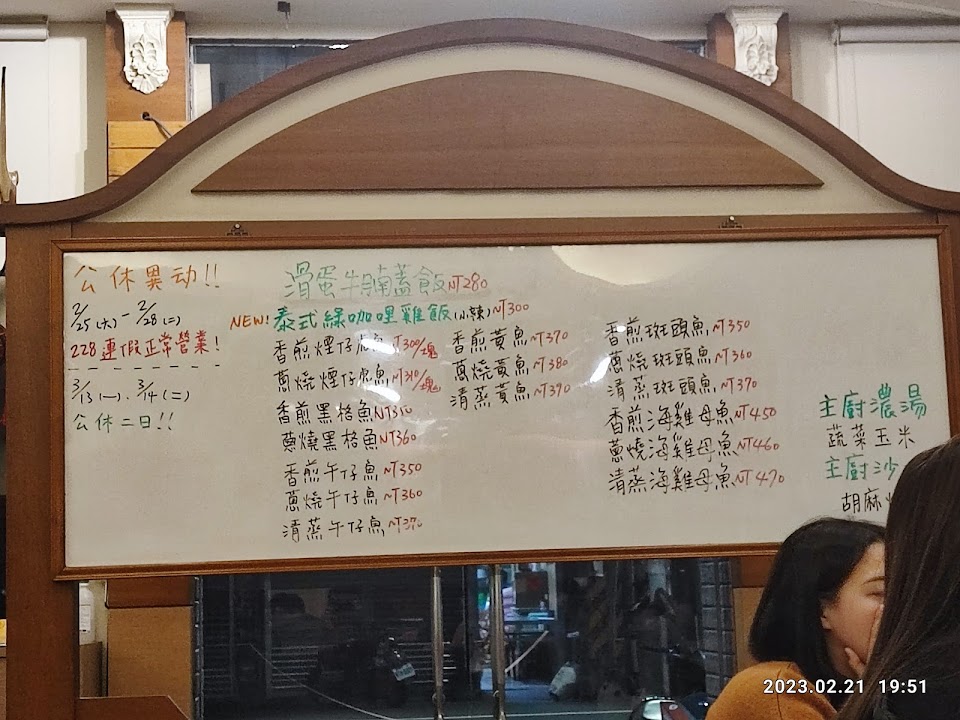 公休異动!!
2/25(六)-2/28(二)
228連假正常營業!
3/13(一)、3/14(二)
公休二日!!
滑蛋牛腩蓋飯NT280
NEW!泰式綠咖哩雞飯(小辣)NT300
香煎煙仔虎魚NT300/塊
蔥燒煙仔虎魚NT310/塊
香煎黑格魚NT350
蔥燒黑格魚NT360
香煎午仔魚NT350
蔥燒午仔魚NT360
清蒸午仔魚NT370
香煎黃魚NT370
蔥燒黃魚NT380
清蒸黃魚NT390
香煎斑頭魚NT350
蔥燒斑頭魚NT360
清蒸斑頭魚NT370
香煎海雞母魚NT450
蔥燒海雞母魚NT460
清蒸海雞母魚NT470
主廚濃湯
蔬菜玉米
主廚沙
胡麻
2023.02.21 19:51